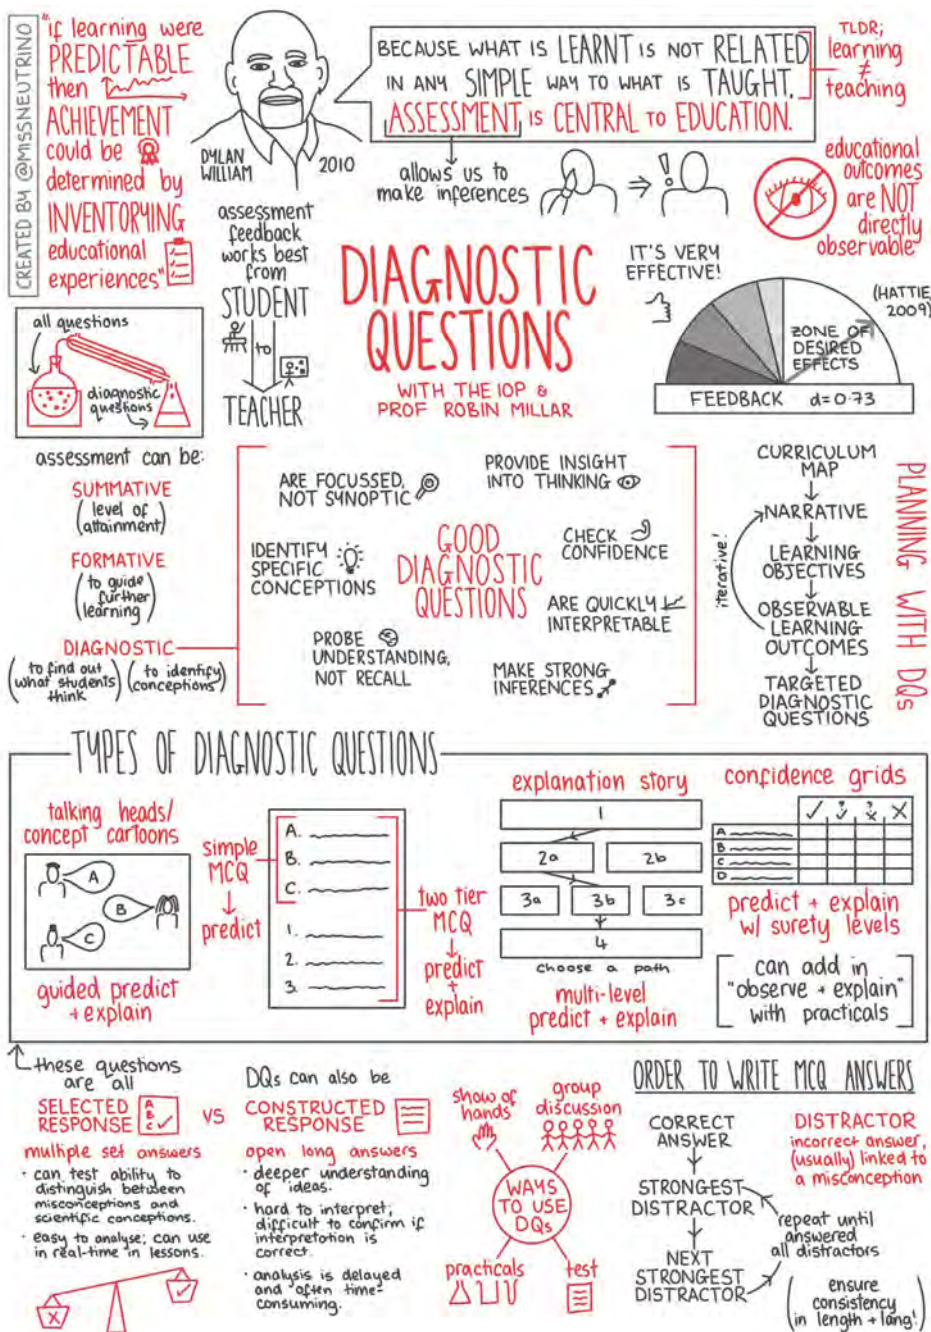 CREATED BY @MISSNEUTRINO
"if learning were
PREDICTABLE
then
ACHIEVEMENT
could be
determined by
INVENTORYING
educational
experiences"
DYLAN
WILLIAM
2010
BECAUSE WHAT IS LEARNT IS NOT RELATED
IN ANY SIMPLE WAY TO WHAT IS TAUGHT,
ASSESSMENT IS CENTRAL TO EDUCATION.
TLDR;
learning
≠
teaching
allows us to
make inferences
⇒ !
educational
outcomes
are NOT
directly
observable
assessment
feedback
works best
from
STUDENT
to
TEACHER
DIAGNOSTIC
QUESTIONS
WITH THE IOP &
PROF ROBIN MILLAR
IT'S VERY
EFFECTIVE!
(HATTIE,
2009)
ZONE OF
DESIRED
EFFECTS
FEEDBACK d=0.73
all questions
diagnostic
questions
assessment can be:
SUMMATIVE
(level of
attainment)
FORMATIVE
(to guide
further
learning)
DIAGNOSTIC
(to find out
what students
think)
(to identify
conceptions)
GOOD
DIAGNOSTIC
QUESTIONS
ARE FOCUSSED,
NOT SYNOPTIC
PROVIDE INSIGHT
INTO THINKING
IDENTIFY
SPECIFIC
CONCEPTIONS
CHECK
CONFIDENCE
ARE QUICKLY
INTERPRETABLE
PROBE
UNDERSTANDING,
NOT RECALL
MAKE STRONG
INFERENCES
PLANNING WITH DQs
CURRICULUM
MAP
NARRATIVE
LEARNING
OBJECTIVES
OBSERVABLE
LEARNING
OUTCOMES
TARGETED
DIAGNOSTIC
QUESTIONS
iterative!
TYPES OF DIAGNOSTIC QUESTIONS
talking heads/
concept cartoons
A
B
C
guided predict
+ explain
simple
MCQ
predict
A.
B.
C.
1.
2.
3.
two tier
MCQ
predict
+
explain
explanation story
1
2a 2b
3a 3b 3c
4
choose a path
multi-level
predict + explain
confidence grids
✓ ?✓ ?x X
A
B
C
D
predict + explain
w/ surety levels
[can add in
"observe + explain"
with practicals]
these questions
are all
SELECTED
RESPONSE
A
B
C ✓
multiple set answers
· can test ability to
distinguish between
misconceptions and
scientific conceptions.
· easy to analyse; can use
in real-time in lessons.
X ✓
VS
DQs can also be
CONSTRUCTED
RESPONSE
open long answers
· deeper understanding
of ideas.
· hard to interpret;
difficult to confirm if
interpretation is
correct.
· analysis is delayed
and often time-
consuming.
WAYS
TO USE
DQs
show of
hands
group
discussion
practicals
test
ORDER TO WRITE MCQ ANSWERS
CORRECT
ANSWER
STRONGEST
DISTRACTOR
NEXT
STRONGEST
DISTRACTOR
repeat until
answered
all distractors
DISTRACTOR
incorrect answer,
(usually) linked to
a misconception
(ensure
consistency
in length + lang!)